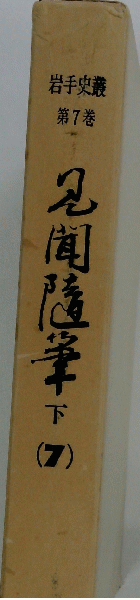 岩手史叢
第7巻
見聞随筆
下
(7)